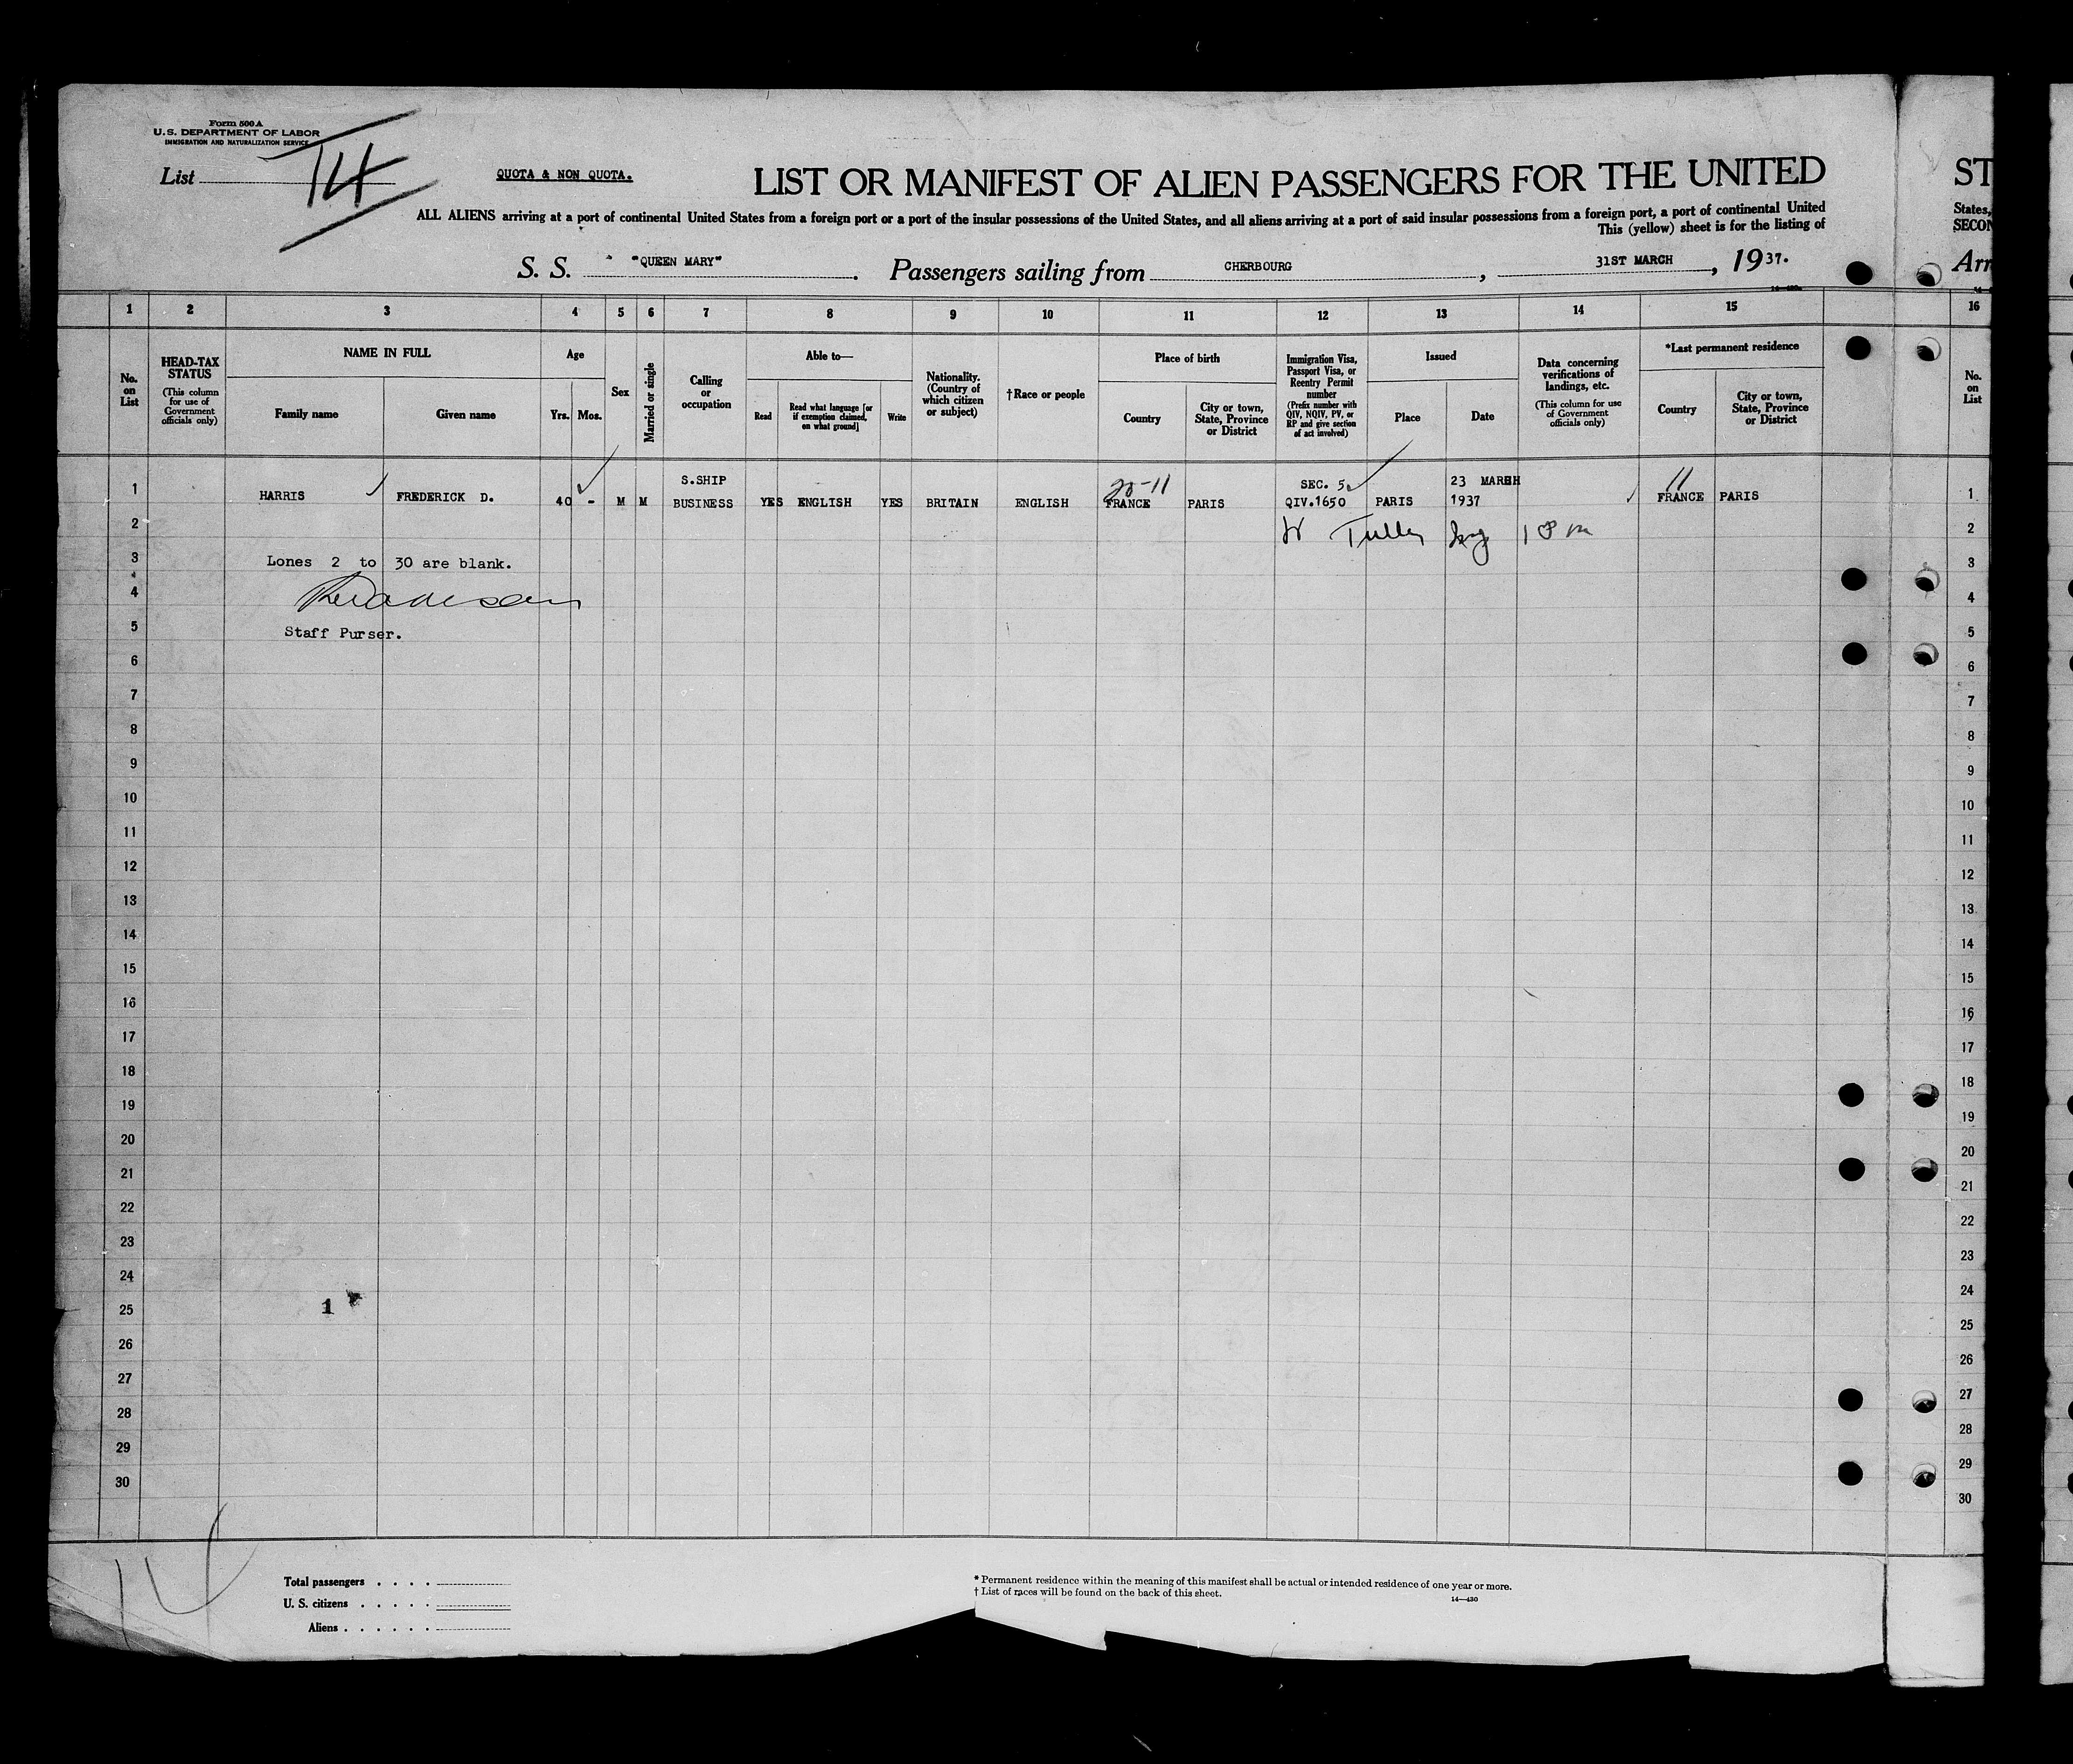 Form 500 A
U.S. DEPARTMENT OF LABOR
IMMIGRATION AND NATURALIZATION SERVICE
List 14
QUOTA & NON QUOTA.
LIST OR MANIFEST OF ALIEN PASSENGERS FOR THE UNITED
ALL ALIENS arriving at a port of continental United States from a foreign port or a port of the insular possessions of the United States, and all aliens arriving at a port of said insular possessions from a foreign port, a port of continental United
This (yellow) sheet is for the listing of
S. S. "QUEEN MARY". Passengers sailing from CHERBOURG, 31ST MARCH, 1937.
ST
States,
SECON
Arr
1 2 3 4 5 6 7 8 9 10 11 12 13 14 15 16
No. on List
HEAD-TAX STATUS
(This column for use of Government officials only)
NAME IN FULL
Family name
Given name
Age
Yrs. Mos.
Sex
Married or single
Calling or occupation
Able to—
Read
Read what language [or if exemption claimed, on what ground]
Write
Nationality. (Country of which citizen or subject)
†Race or people
Place of birth
Country
City or town, State, Province or District
Immigration Visa, Passport Visa, or Reentry Permit number
(Prefix number with QIV, NQIV, PV, or RP and give section of act involved)
Issued
Place
Date
Data concerning verifications of landings, etc.
(This column for use of Government officials only)
*Last permanent residence
Country
City or town, State, Province or District
No. on List
S.SHIP SEC. 5 23 MARCH 11
1 HARRIS FREDERICK D. 40 - M M BUSINESS YES ENGLISH YES BRITAIN ENGLISH FRANCE PARIS QIV.1650 PARIS 1937 FRANCE PARIS 1
2 2
3 Lones 2 to 30 are blank. 3
4 4
5 Staff Purser. 5
6 6
7 7
8 8
9 9
10 10
11 11
12 12
13 13
14 14
15 15
16 16
17 17
18 18
19 19
20 20
21 21
22 22
23 23
24 24
25 1 25
26 26
27 27
28 28
29 29
30 30
Total passengers . . . .
U. S. citizens . . . . .
Aliens . . . . . .
* Permanent residence within the meaning of this manifest shall be actual or intended residence of one year or more.
† List of races will be found on the back of this sheet.
14—430